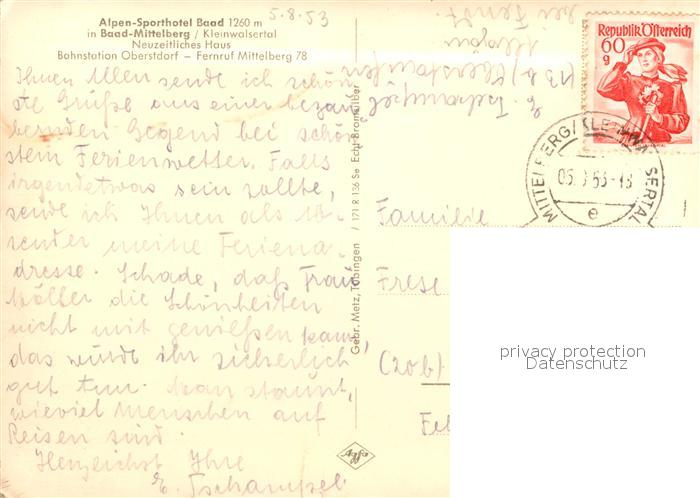 Alpen-Sporthotel Baad 1260 m
in Baad-Mittelberg / Kleinwalsertal
Neuzeitliches Haus
Bahnstation Oberstdorf – Fernruf Mittelberg 78
5.8.53
Ihnen Allen sende ich schön-
ste Grüße aus einer bezau-
bernden Gegend bei schön-
stem Ferienwetter. Falls
irgendetwas sein sollte,
sende ich Ihnen als
meine Feriena-
dresse. Schade, daß Frau
Möller die Schönheiten
nicht mit genießen kann,
das würde ihr sicherlich
gut tun. Man staunt,
wieviel Menschen auf
Reisen sind.
Herzlichst Ihre
E. Tschampel
E. Tschampel
(13 b)
Gebr. Metz, Tübingen / 171 R 136 Se Echt Bromsilber
Republik Österreich
60
g
MITTELBERG/KLEINWALSERTAL
e
Familie
Frese
(20b)
privacy protection
Datenschutz